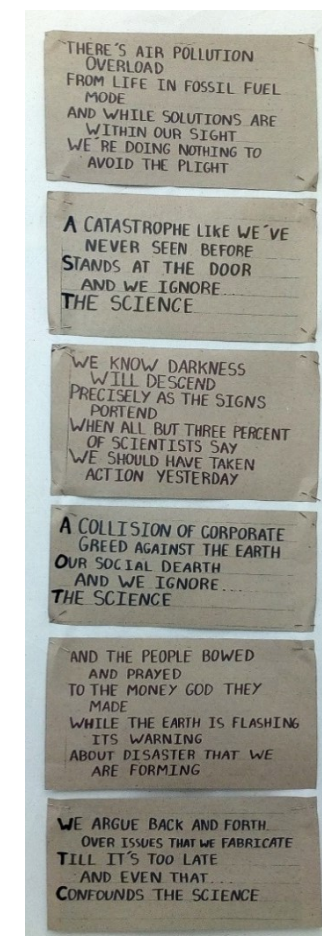 THERE'S AIR POLLUTION
OVERLOAD
FROM LIFE IN FOSSIL FUEL
MODE
AND WHILE SOLUTIONS ARE
WITHIN OUR SIGHT
WE'RE DOING NOTHING TO
AVOID THE PLIGHT
A CATASTROPHE LIKE WE'VE
NEVER SEEN BEFORE
STANDS AT THE DOOR
AND WE IGNORE...
THE SCIENCE
WE KNOW DARKNESS
WILL DESCEND
PRECISELY AS THE SIGNS
PORTEND
WHEN ALL BUT THREE PERCENT
OF SCIENTISTS SAY
WE SHOULD HAVE TAKEN
ACTION YESTERDAY
A COLLISION OF CORPORATE
GREED AGAINST THE EARTH
OUR SOCIAL DEARTH
AND WE IGNORE...
THE SCIENCE
AND THE PEOPLE BOWED
AND PRAYED
TO THE MONEY GOD THEY
MADE
WHILE THE EARTH IS FLASHING
ITS WARNING
ABOUT DISASTER THAT WE
ARE FORMING
WE ARGUE BACK AND FORTH
OVER ISSUES THAT WE FABRICATE
TILL IT'S TOO LATE
AND EVEN THAT...
CONFOUNDS THE SCIENCE